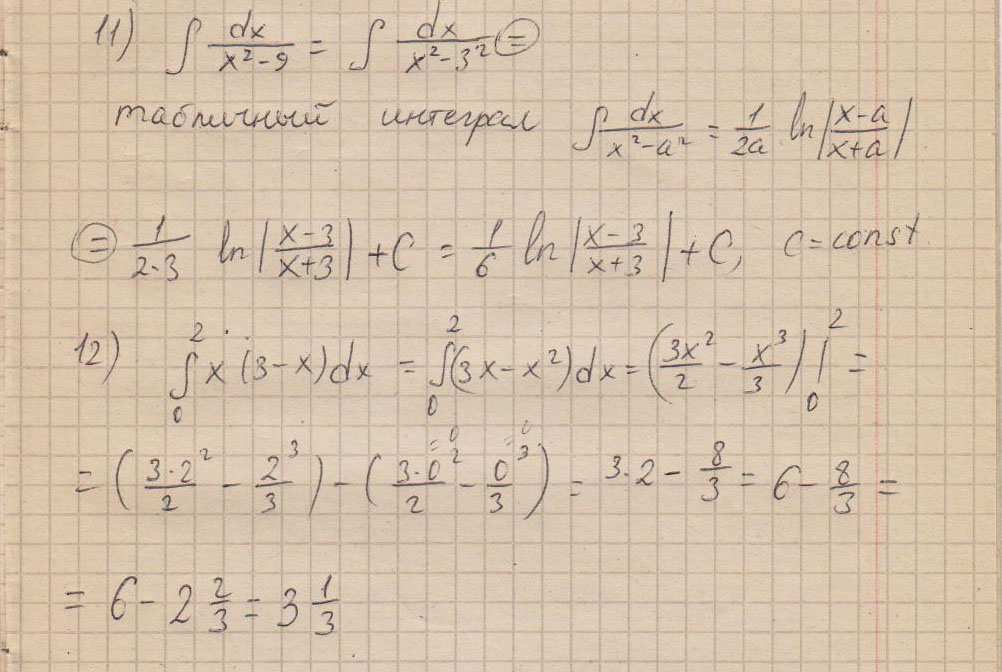 11) ∫ dx/(x²-9) = ∫ dx/(x²-3²) (=)
табличный интеграл ∫ dx/(x²-a²) = 1/(2a) ln|(x-a)/(x+a)|
(=) 1/(2·3) ln|(x-3)/(x+3)| + C = 1/6 ln|(x-3)/(x+3)| + C, C = const.
12) ∫₀² x (3-x)dx = ∫₀² (3x-x²)dx = (3x²/2 - x³/3)|₀² =
= (3·2²/2 - 2³/3) - (3·0²/2 ⁼⁰ - 0³/3 ⁼⁰) = 3·2 - 8/3 = 6 - 8/3 =
= 6 - 2 2/3 = 3 1/3